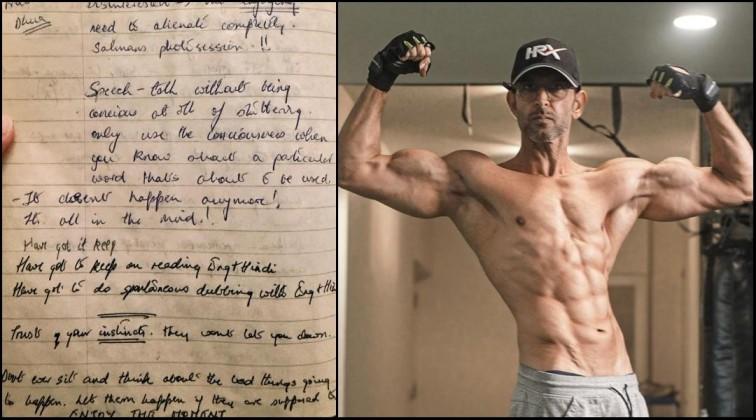 Dhua
need to alienate completely.
Salmans photo session. !!
Speech - talk without being
concious at all of stuttering.
only use the consciousness when
you know about a particular
word thats about to be used.
- It doesnt happen anymore!,
Its all in the mind.!
Have got it keep
Have got to keep on reading Eng+Hindi
Have got to do spontaneous dubbing with Eng+Hi
Trust your instincts. They wont let you down.
Dont ever sit and think about the bad things going
to happen. Let them happen if they are supposed to
ENJOY THE MOMENT
HRX